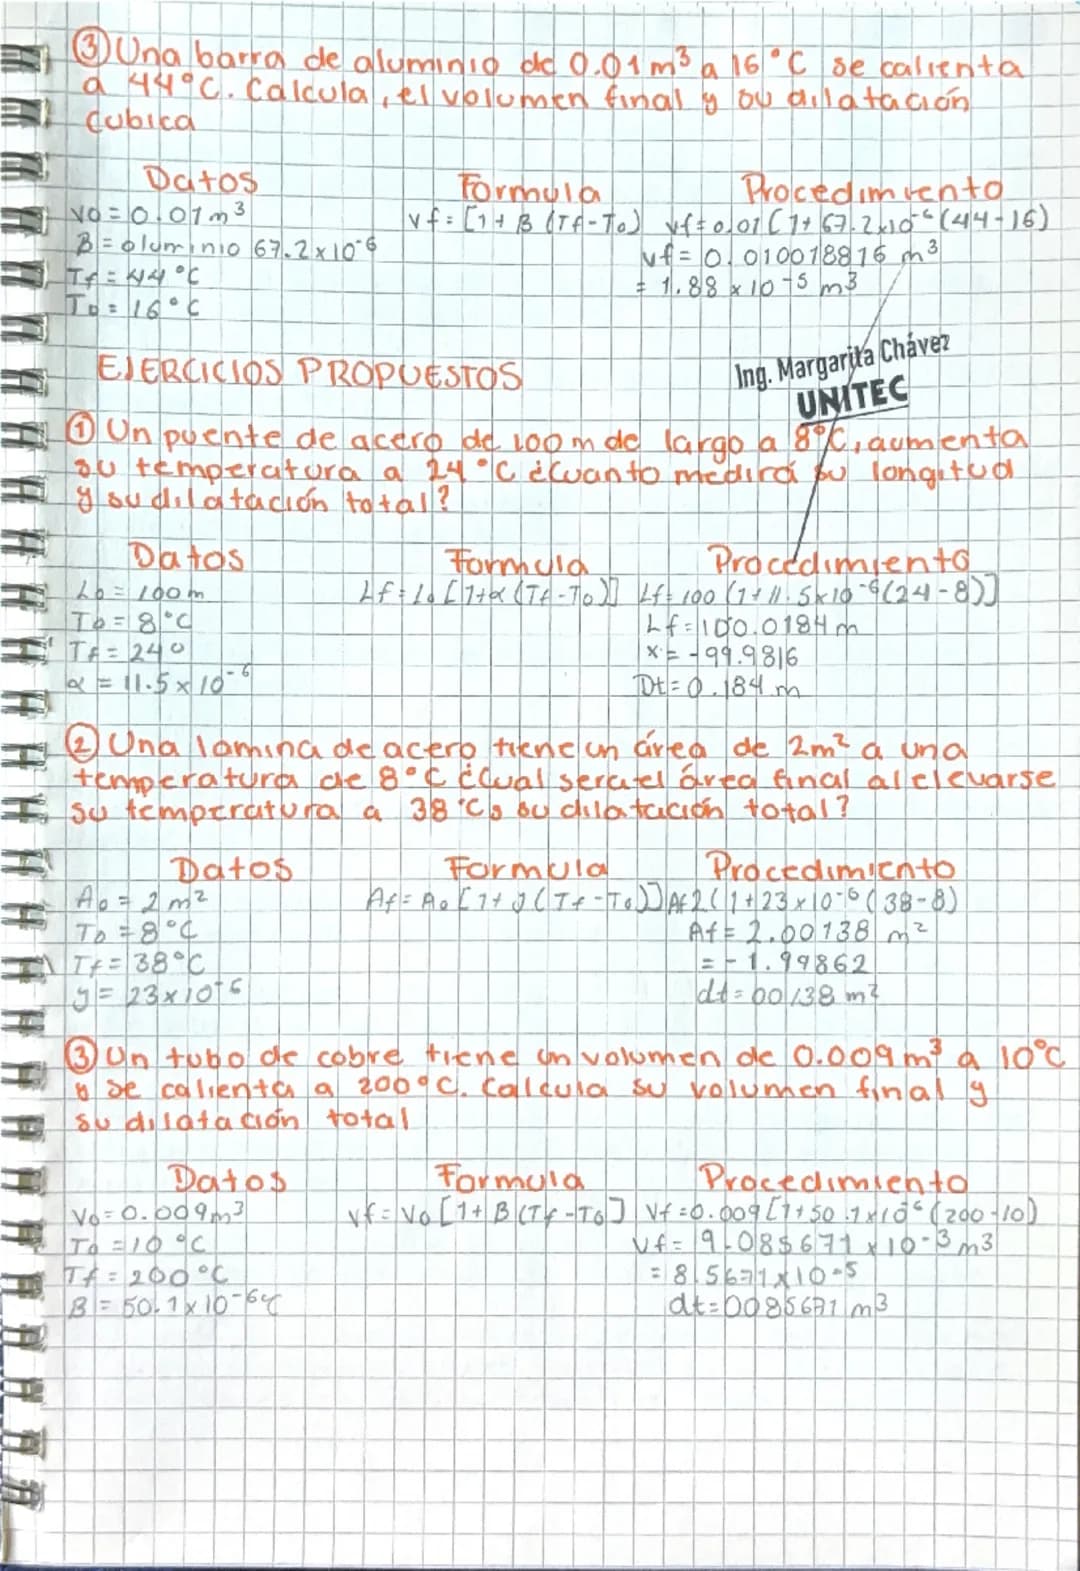 ③ Una barra de aluminio de 0.01 m³ a 16°C se calienta
a 44°C. Calcula, el volumen final y su dilatación
cubica
Datos Formula Procedimiento
Vo = 0.01 m³ Vf = [1+B (Tf-To) Vf = 0.01 [1+67.2x10⁻⁶ (44-16)
B = aluminio 67.2 x 10⁻⁶ Vf = 0.010018816 m³
Tf = 44°C = 1.88 x 10⁻⁵ m³
To = 16°C
Ing. Margarita Chávez
UNITEC
EJERCICIOS PROPUESTOS
① Un puente de acero de 100 m de largo a 8°C, aumenta
su temperatura a 24°C ¿Cuanto medirá su longitud
y su dilatación total?
Datos Formula Procedimiento
Lo = 100 m Lf = Lo [1+α (Tf-To)] Lf = 100 (1+11.5x10⁻⁶(24-8)]
To = 8°C Lf = 100.0184 m
Tf = 24° x = -99.9816
α = 11.5 x 10⁻⁶ Dt = 0.184 m
② Una lamina de acero tiene un área de 2m² a una
temperatura de 8°C ¿Cual sera el área final al elevarse
su temperatura a 38°C y su dilatación total?
Datos Formula Procedimiento
Ao = 2 m² Af = Ao [1+y (Tf-To)] Af 2 (1+23x10⁻⁶ (38-8)
To = 8°C Af = 2.00138 m²
Tf = 38°C = -1.99862
y = 23x10⁻⁶ dt = 00138 m²
③ Un tubo de cobre tiene un volumen de 0.009 m³ a 10°C
y se calienta a 200°C. Calcula su volumen final y
su dilatación total
Datos Formula Procedimiento
Vo = 0.009 m³ Vf = Vo [1+B (Tf-To] Vf = 0.009 [1+50.1x10⁻⁶ (200-10)
To = 10°C Vf = 9.085671 x 10⁻³ m³
Tf = 200°C = 8.5671x10⁻⁵
B = 50.1 x 10⁻⁶ °C dt = 0085671 m³